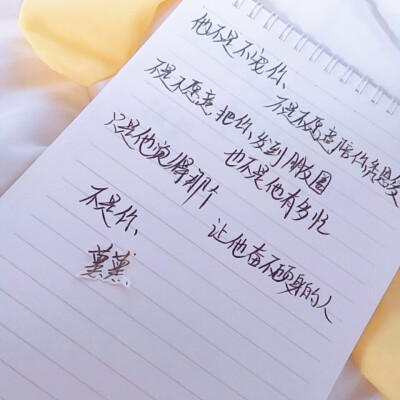 他不是不宠你、
不是不愿意陪你秀恩爱
不是不愿意把你发到朋友圈
也不是他有多忙
只是他觉得那个
让他奋不顾身的人
不是你、